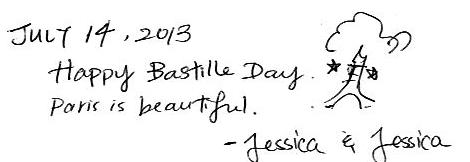 JULY 14, 2013
Happy Bastille Day.
Paris is beautiful.
- Jessica & Jessica